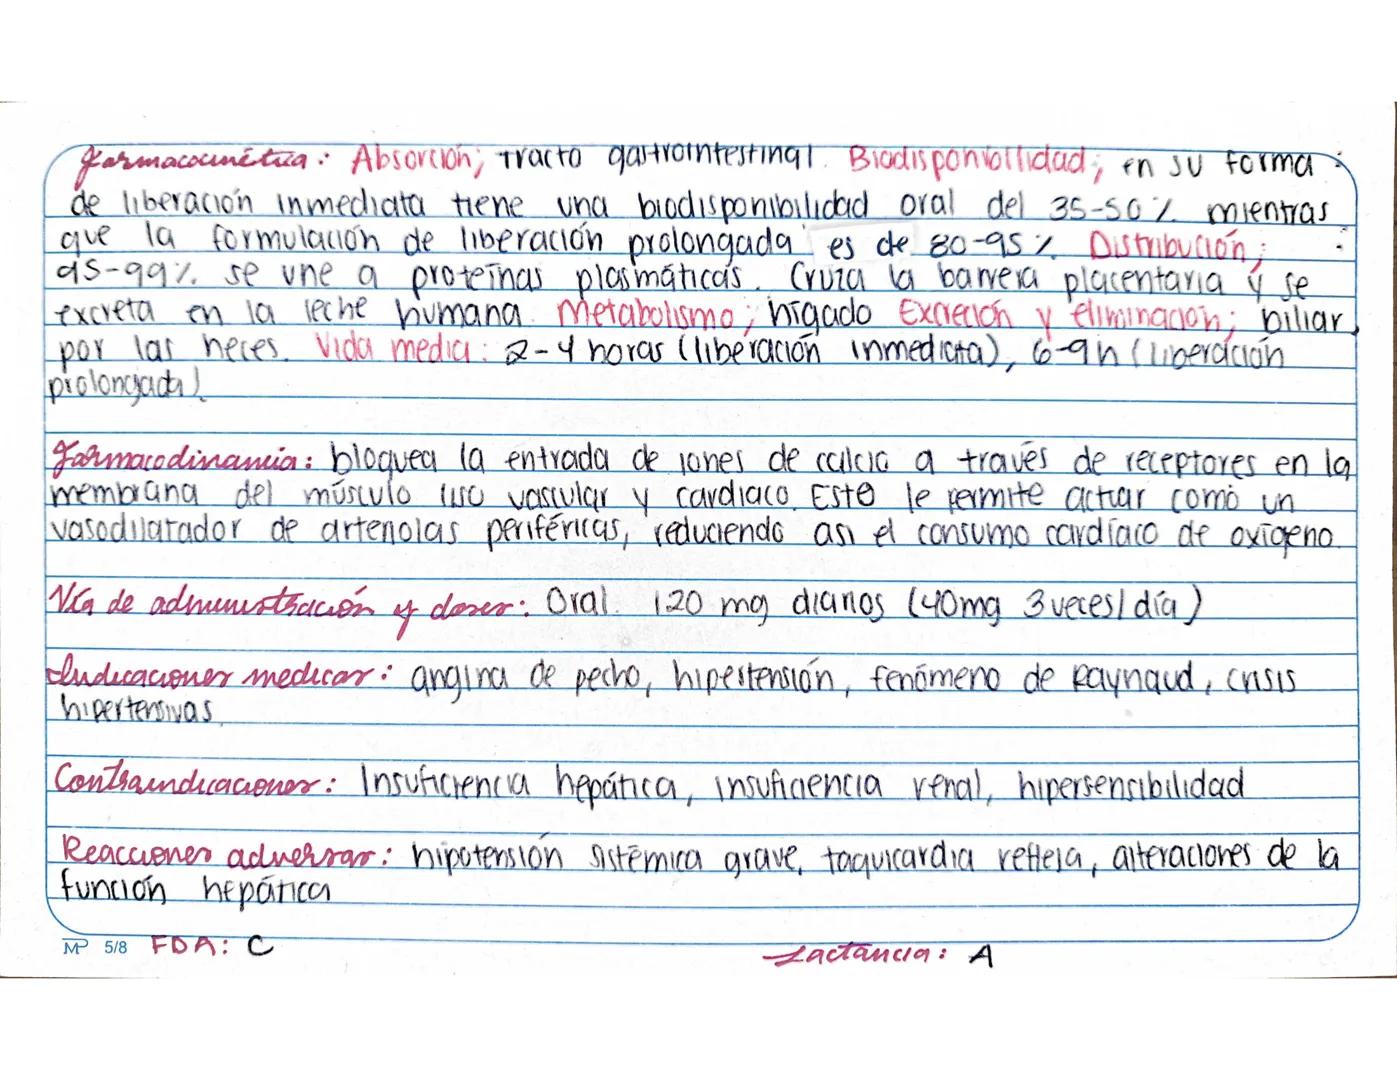 Farmacocinética: Absorción; Tracto gastrointestinal. Biodisponibilidad; en su forma
de liberación inmediata tiene una biodisponibilidad oral del 35-50% mientras
que la formulación de liberación prolongada es de 80-95%. Distribución;
95-99% se une a proteínas plasmáticas. Cruza la barrera placentaria y se
excreta en la leche humana. Metabolismo; hígado Excreción y eliminación; biliar,
por las heces. Vida media: 2-4 horas (liberación inmediata), 6-9h (liberación
prolongada).
Farmacodinamia: bloquea la entrada de iones de calcio a través de receptores en la
membrana del músculo liso vascular y cardiaco. Esto le permite actuar como un
vasodilatador de arteriolas periféricas, reduciendo así el consumo cardíaco de oxígeno.
Vía de administración y dosis: Oral. 120 mg diarios (40mg 3 veces/día)
Indicaciones medicas: angina de pecho, hipestensión, fenómeno de Raynaud, crisis
hipertensivas.
Contraindicaciones: Insuficiencia hepática, insuficiencia renal, hipersensibilidad
Reacciones adversas: hipotensión sistémica grave, taquicardia refleja, alteraciones de la
función hepática
MP 5/8 FDA: C Lactancia: A